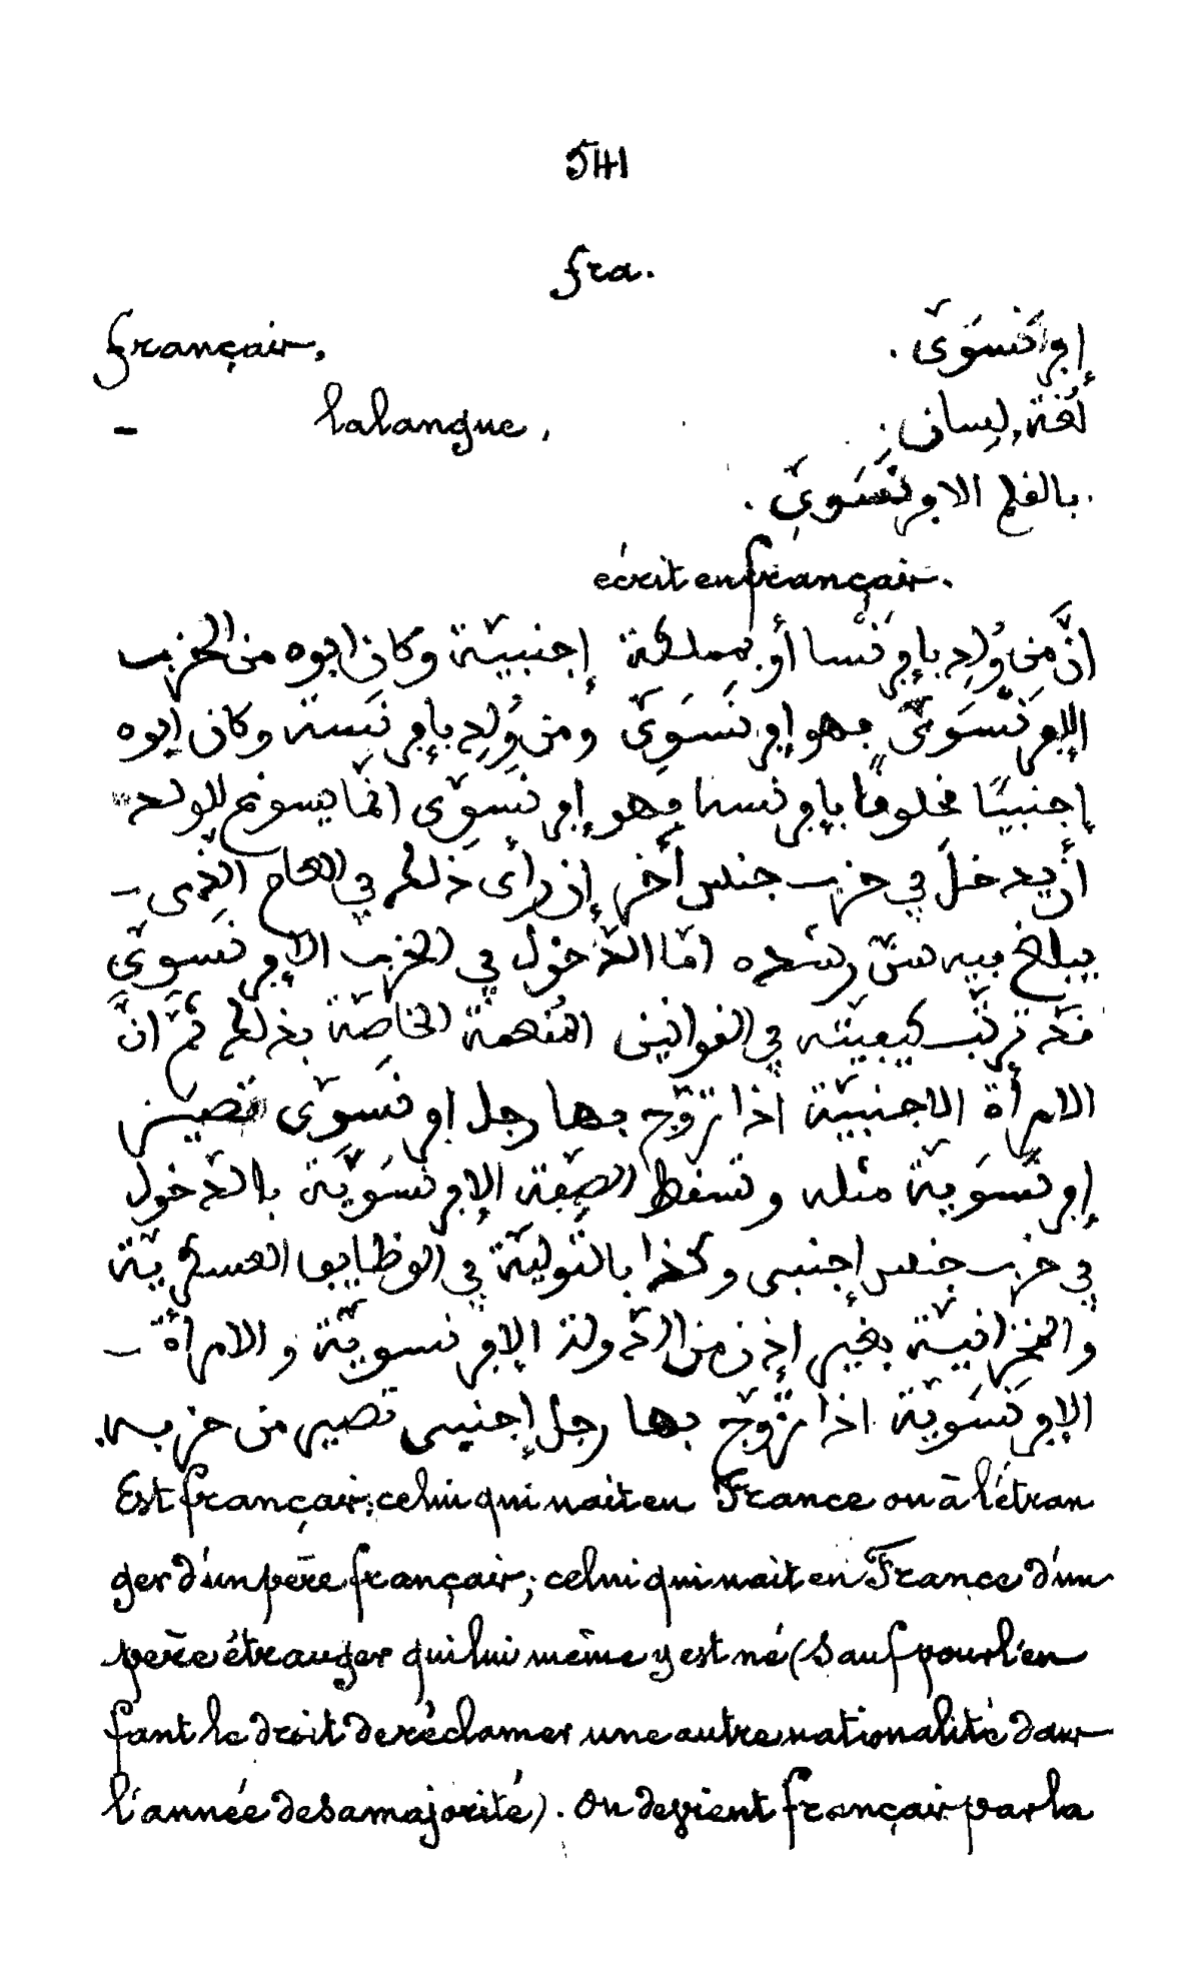 541
fra.
français, إفرانسوىّ .
– la langue, لُغة, لِسان.
بالفلم الافرنسَوىّ .
écrit en français.
انَّ من وُلِد بإفرَنْسا أو بمملكة إجنبيّة وكان ابوه من الحزب
الإفرَنْسَوىّ فهو إفرنسَوىّ ومن وُلِد بإفرنَسة وكان ابوه
إجنبيًا مخلوفًا بإفرنسا فهو إفرنسَوىّ انّما يسوغ للولد
أن يدخلَ في حزب جنس أخر إن رأى ذلك في العام الذّى –
يبلغ فيه سنّ رشده امّا الدّخول في الحزب الإفرنسوىّ
فد ترتّب كيفيّته في الفوانين المُتعمة الخاصّة بذلك ثمّ انّ
الامرأة الاجنبيّة اذا تزوّج بها رجل افرنسَوىّ تصير
إفرنسَويّة مثله وتسفط الصِفة الإفرنسَويّة بالدّخول
في حزب جنس إجنبى وكذا بالتّوليّة في الوظايف العسكريّة
والمخزانيّة بغير إذن من الدّولة الإفرنسويّة والامرأة –
الإفرنسَويّة اذا تزّوج بها رجل إجنبى تصير من حزبه.
Est français: celui qui nait en France ou à l'étran
ger d'un père français; celui qui nait en France d'un
père étranger qui lui même y est né (sauf pour l'en
fant le droit de réclamer une autre nationalité dans
l'année de sa majorité). On devient français par la